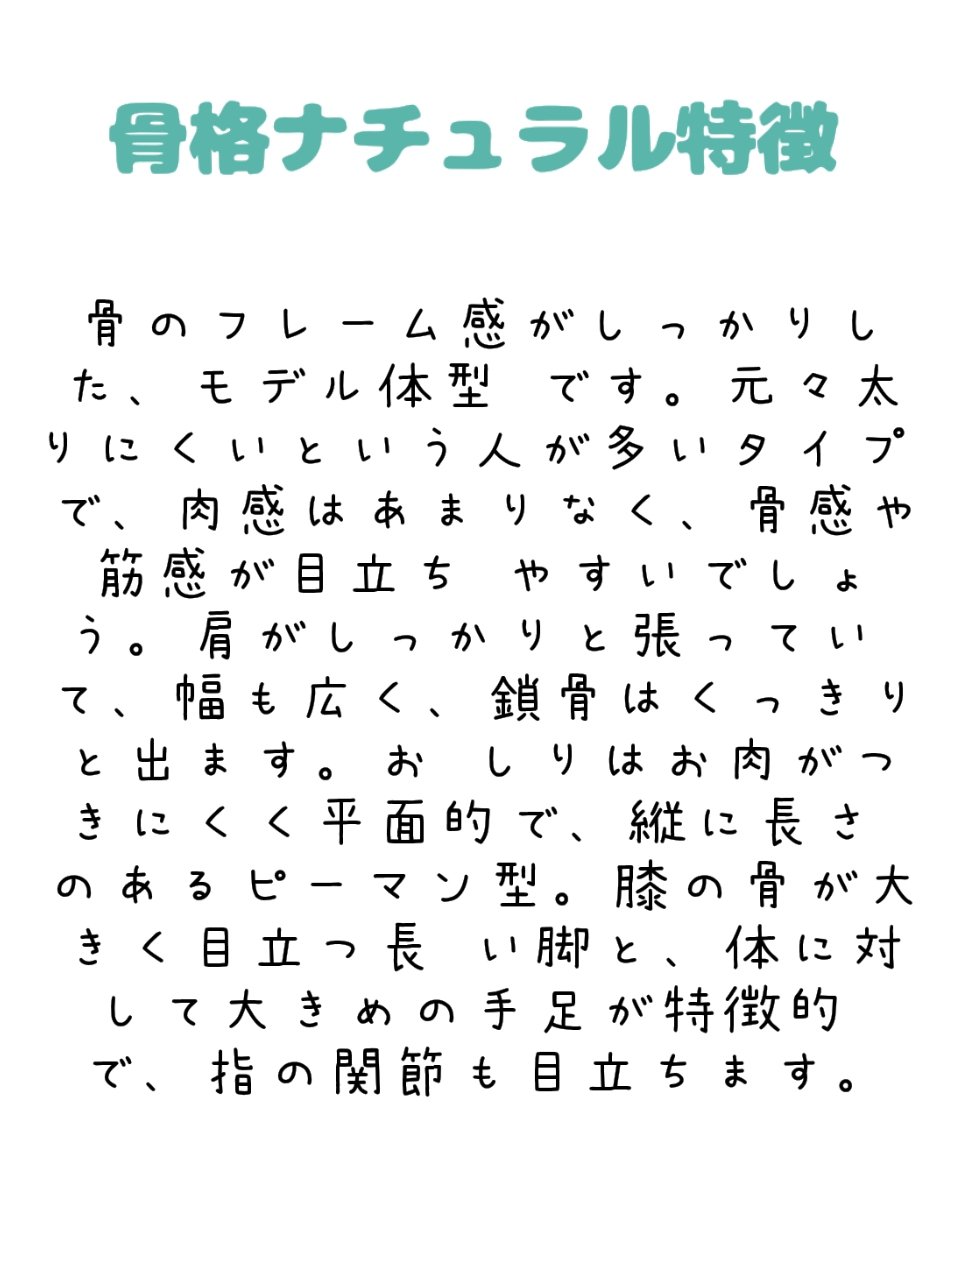 骨格ナチュラル特徴
骨のフレーム感がしっかりし
た、モデル体型 です。元々太
りにくいという人が多いタイプ
で、肉感はあまりなく、骨感や
筋感が目立ち やすいでしょ
う。肩がしっかりと張ってい
て、幅も広く、鎖骨はくっきり
と出ます。お しりはお肉がつ
きにくく平面的で、縦に長さ
のあるピーマン型。膝の骨が大
きく目立つ長 い脚と、体に対
して大きめの手足が特徴的
で、指の関節も目立ちます。